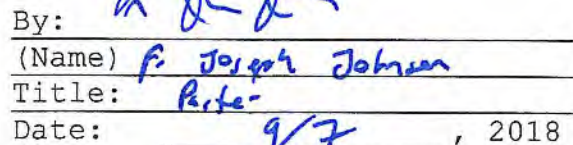 By:
(Name) F. Joseph Johnson
Title: Partner
Date: 9/7, 2018